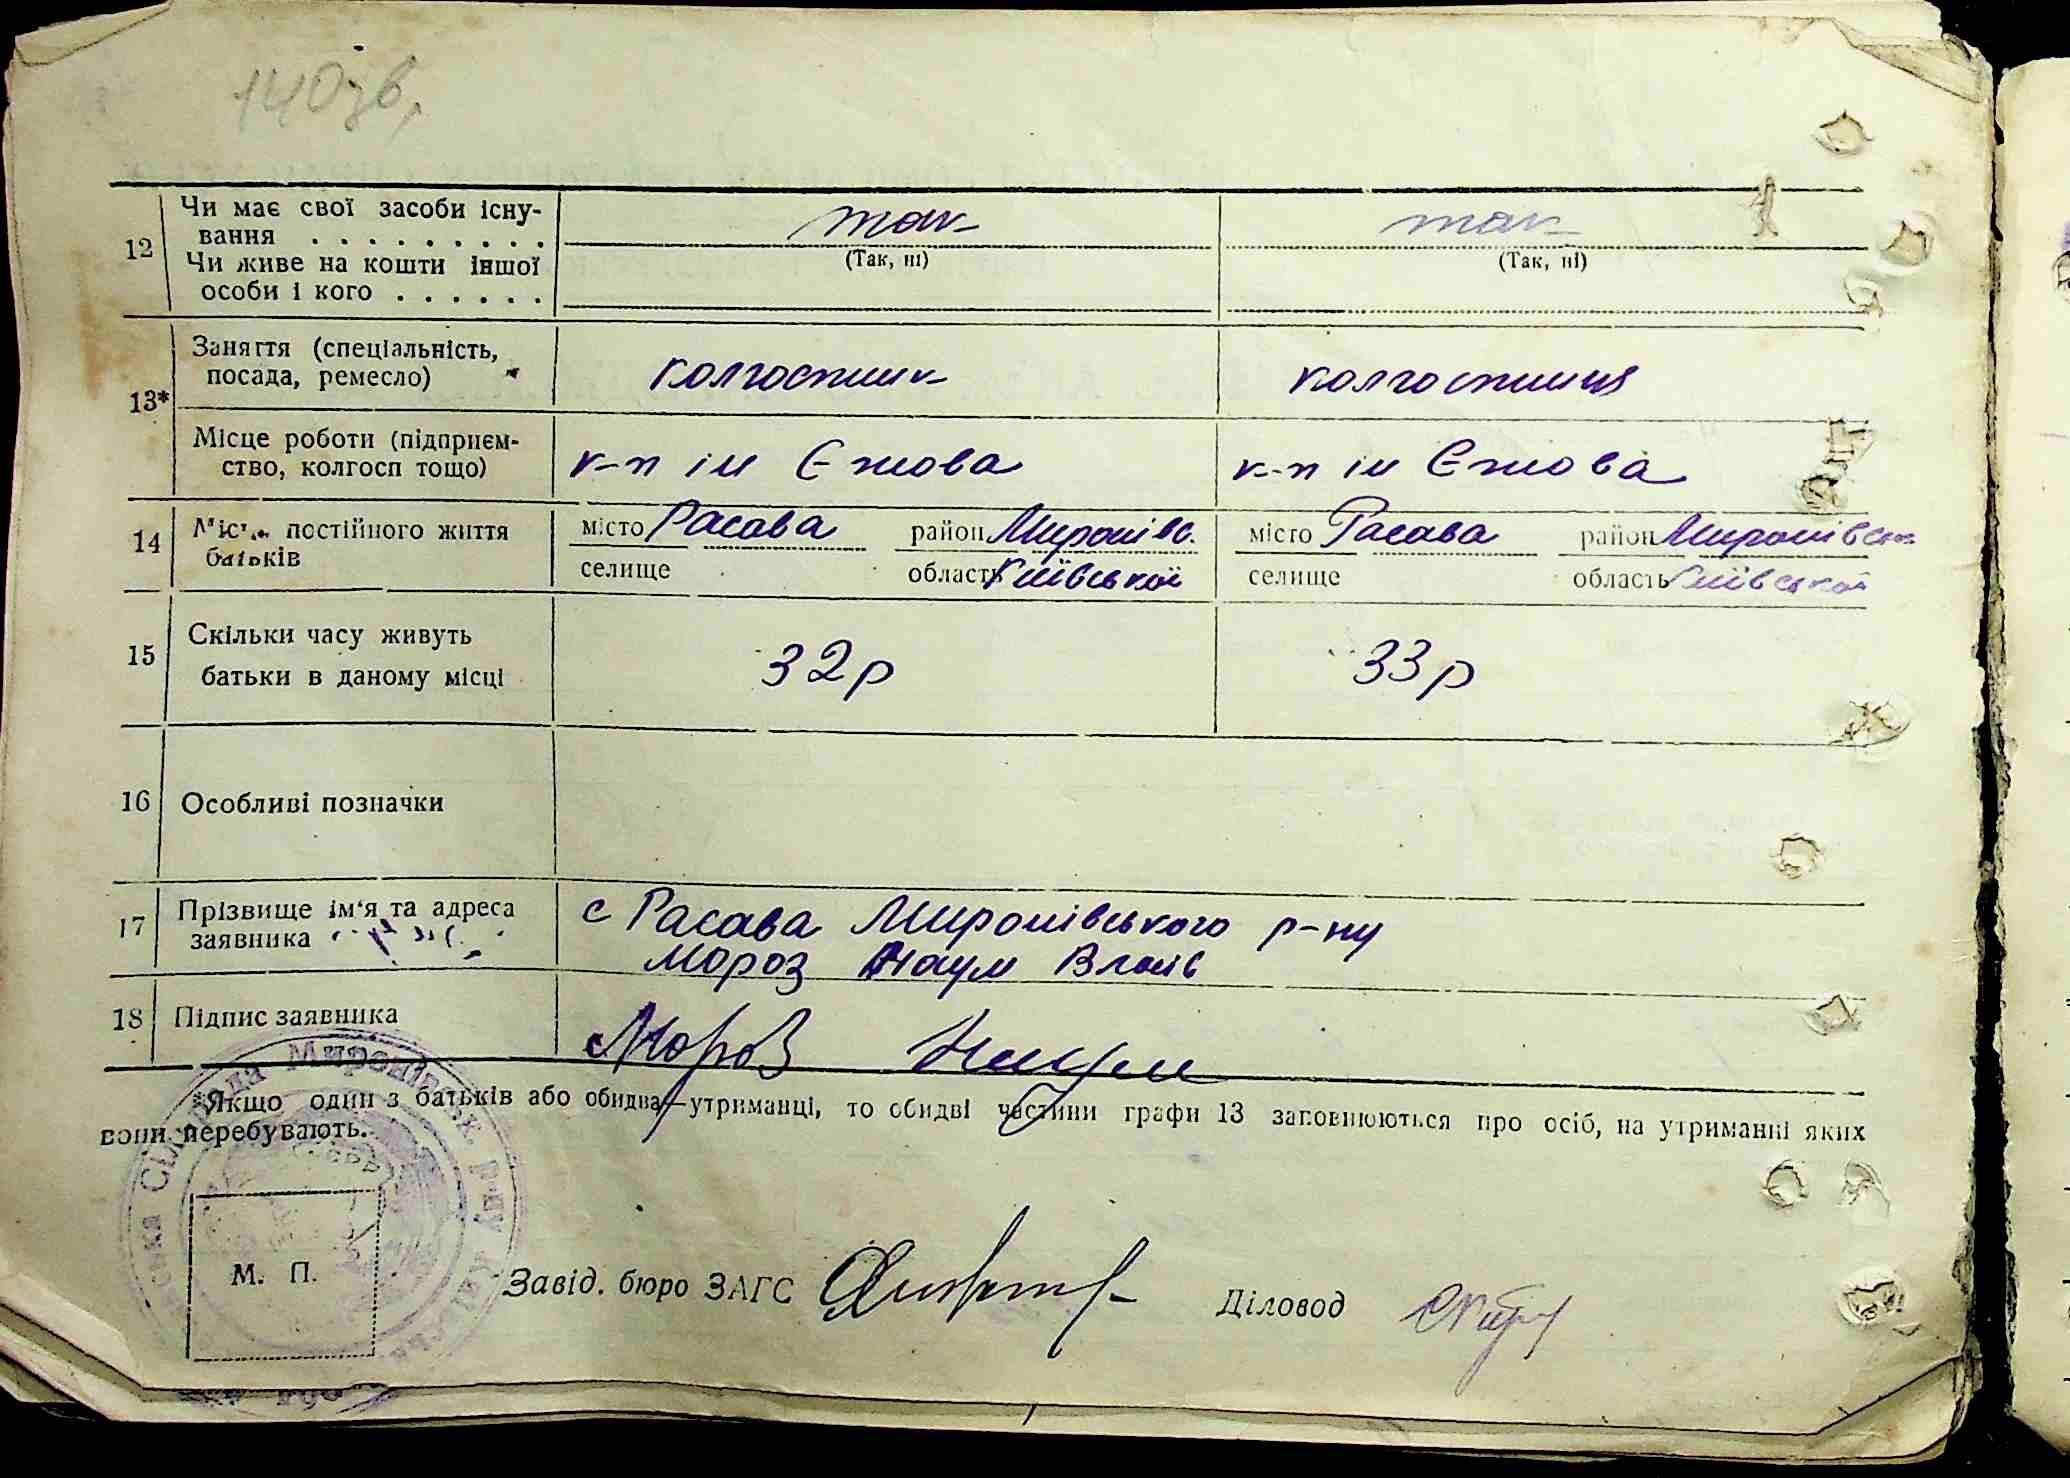 140зв,
12 Чи має свої засоби існу-
вання . . . . . . . . . так так
(Так, ні) (Так, ні)
Чи живе на кошти іншої
особи і кого . . . . . .
13* Заняття (спеціальність,
посада, ремесло) колгоспник колгоспниця
Місце роботи (підприєм-
ство, колгосп тощо) к-п ім Єжова к-п ім Єжова
14 постійного життя місто Расава район Миронівс. місто Расава район Миронівськ
батьків селище область Київської селище область Київської
15 Скільки часу живуть
батьки в даному місці 32р 33р
16 Особливі позначки
17 Прізвище ім'я та адреса с Расава Миронівського р-ну
заявника Мороз Наум Влас
18 Підпис заявника Мороз Наум
*Якщо один з батьків або обидва—утриманці, то обидві частини графи 13 заповнюються про осіб, на утриманні яких
вони перебувають.
М. П.
Завід. бюро ЗАГС Діловод
Миронівськ р-ну